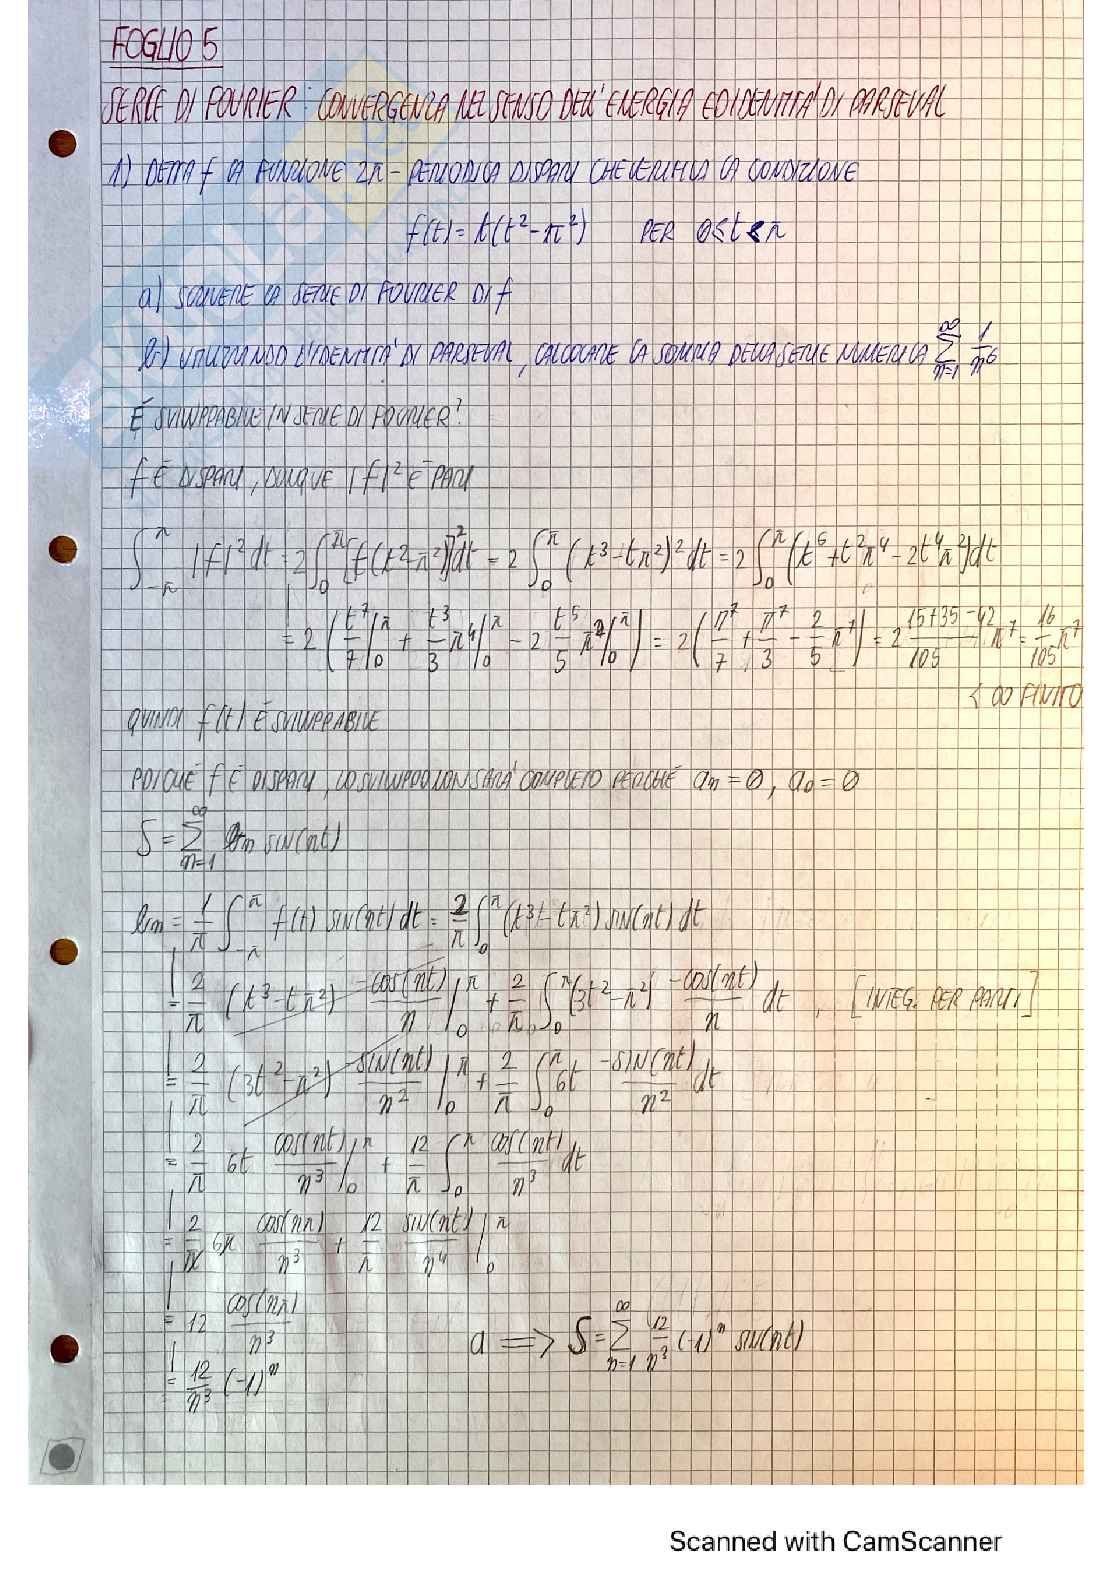 FOGLIO 5
SERIE DI FOURIER: CONVERGENZA NEL SENSO DELL'ENERGIA ED IDENTITA' DI PARSEVAL
1) DETTA f LA FUNZIONE 2π-PERIODICA DISPARI CHE VERIFICA LA CONDIZIONE
f(t) = t(t²-π²) PER 0≤t≤π
a) SCRIVERE LA SERIE DI FOURIER DI f
b) UTILIZZANDO L'IDENTITA' DI PARSEVAL, CALCOLARE LA SOMMA DELLA SERIE NUMERICA ∑_{n=1}^{∞} 1/n⁶
É SVILUPPABILE IN SERIE DI FOURIER?
f É DISPARI, DUNQUE |f|² É PARI
∫_{-π}^{π} |f|² dt = 2∫_0^π [t(t²-π²)]² dt = 2∫_0^π (t³-tπ²)² dt = 2∫_0^π (t⁶+t²π⁴-2t⁴π²)dt
= 2 (t⁷/7|_0^π + t³/3 π⁴|_0^π - 2 t⁵/5 π²|_0^π) = 2(π⁷/7 + π⁷/3 - 2/5 π⁷) = 2 (15+35-42)/105 π⁷ = 16/105 π⁷
< ∞ FINITO
QUINDI f(t) É SVILUPPABILE
POICHÉ f É DISPARI, LO SVILUPPO NON SARA' COMPLETO PERCHÉ an = 0, a0 = 0
S = ∑_{n=1}^{∞} bn SIN(nt)
bn = 1/π ∫_{-π}^{π} f(t) SIN(nt) dt = 2/π ∫_0^π (t³-tπ²) SIN(nt) dt
= 2/π (t³-tπ²) -cos(nt)/n |_0^π + 2/π ∫_0^π (3t²-π²) -cos(nt)/n dt, [INTEG. PER PARTI]
= 2/π (3t²-π²) -SIN(nt)/n² |_0^π + 2/π ∫_0^π 6t -SIN(nt)/n² dt
= 2/π 6t cos(nt)/n³ |_0^π + 12/π ∫_0^π cos(nt)/n³ dt
= 2/π 6π cos(nπ)/n³ + 12/π SIN(nt)/n⁴ |_0^π
= 12 cos(nπ)/n³
a ⟹ S = ∑_{n=1}^{∞} 12/n³ (-1)ⁿ SIN(nt)
= 12/n³ (-1)ⁿ
Scanned with CamScanner